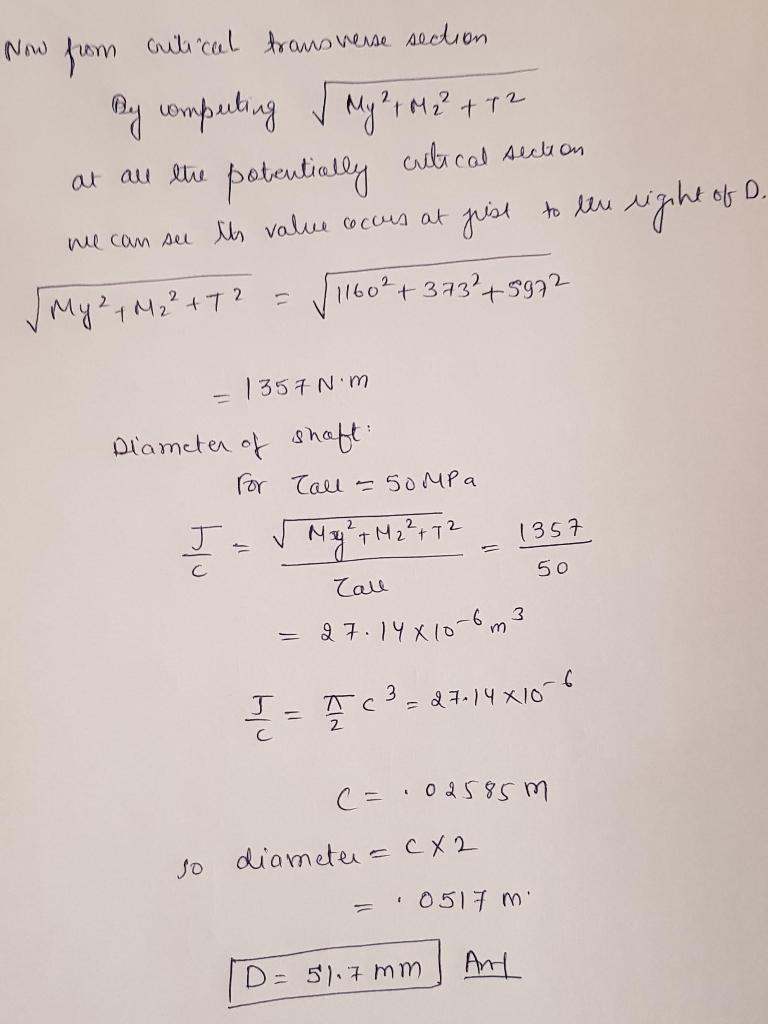 Now from critical transverse section
By computing √My²+Mz²+T²
at all the potentially critical section
we can see its value occurs at just to the right of D.
√My²+Mz²+T² = √1160²+373²+597²
= 1357 N·m
Diameter of shaft:
For τall = 50 MPa
J/c = √My²+Mz²+T² / τall = 1357/50
= 27.14 × 10⁻⁶ m³
J/c = π/2 c³ = 27.14 × 10⁻⁶
C = .02585 m
so diameter = C × 2
= .0517 m.
D = 51.7 mm Ans